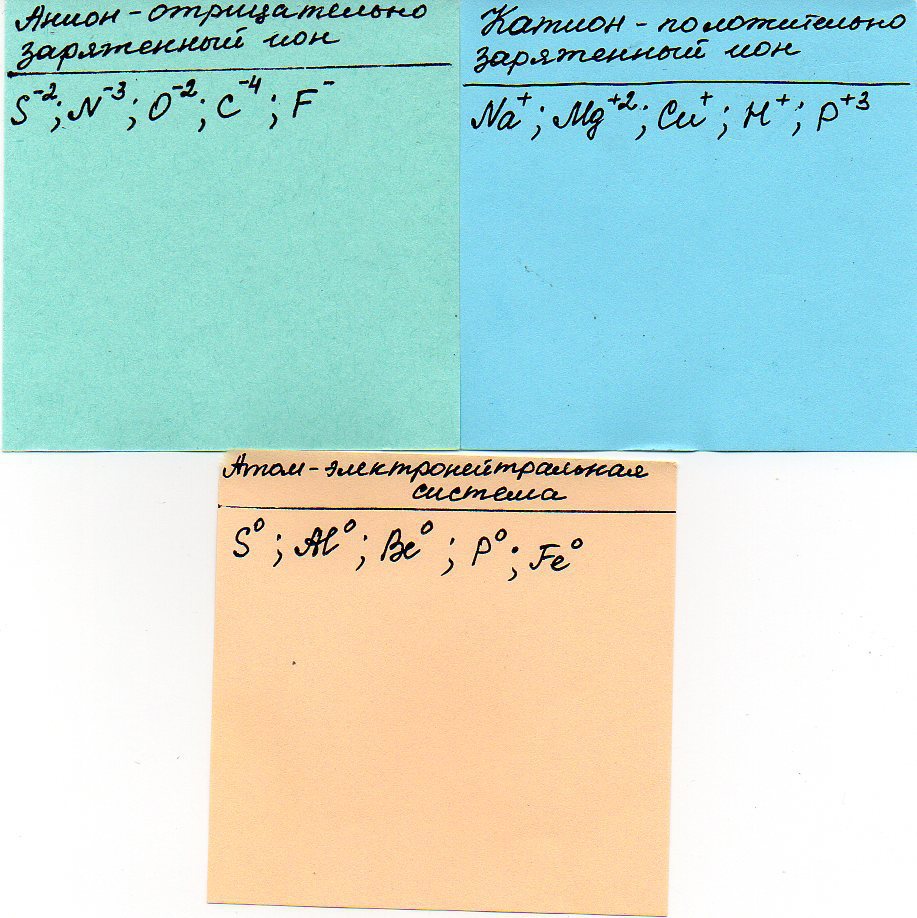 Анион - отрицательно
заряженный ион
S⁻²; N⁻³; O⁻²; C⁻⁴; F⁻
Катион - положительно
заряженный ион
Na⁺; Mg⁺²; Cu⁺; H⁺; P⁺³
Атом - электронейтральная
система
S⁰; Al⁰; Be⁰; P⁰; Fe⁰